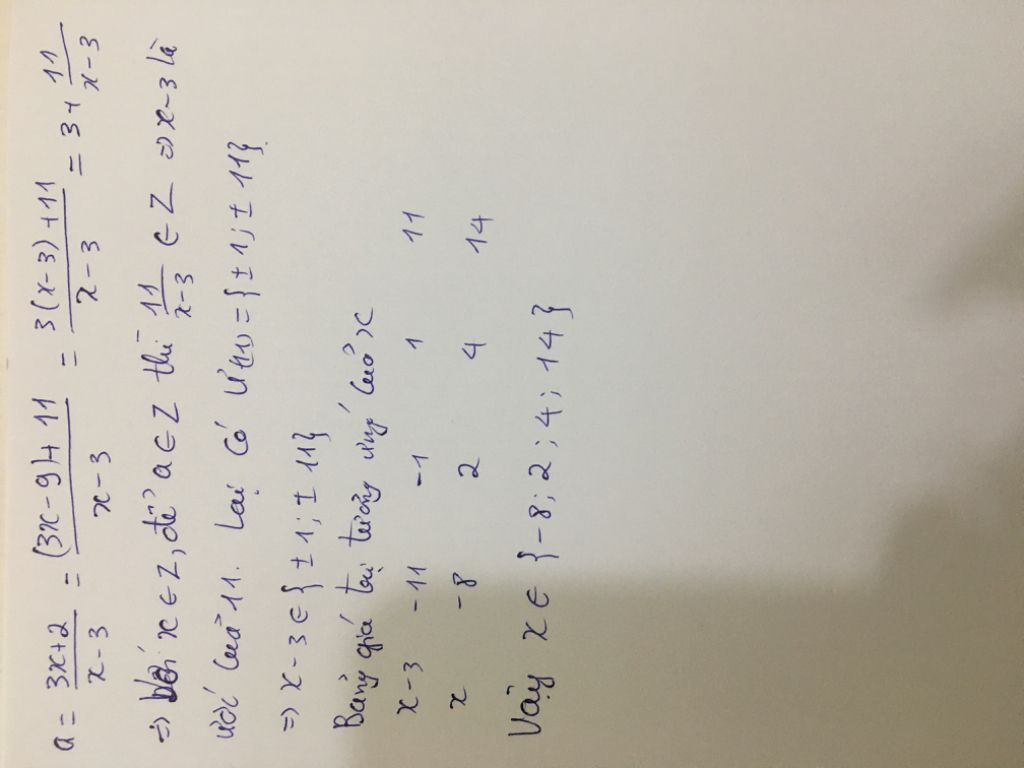 a = \frac{3x+2}{x-3} = \frac{(3x-9)+11}{x-3} = \frac{3(x-3)+11}{x-3} = 3 + \frac{11}{x-3}
=> Với x ∈ Z, để a ∈ Z thì \frac{11}{x-3} ∈ Z => x-3 là
ước của 11. Lại có Ư(11) = {±1; ±11}
=> x-3 ∈ {±1; ±11}
Bảng giá trị tương ứng của x
x-3 -11 -1 1 11
x -8 2 4 14
Vậy x ∈ {-8; 2; 4; 14}